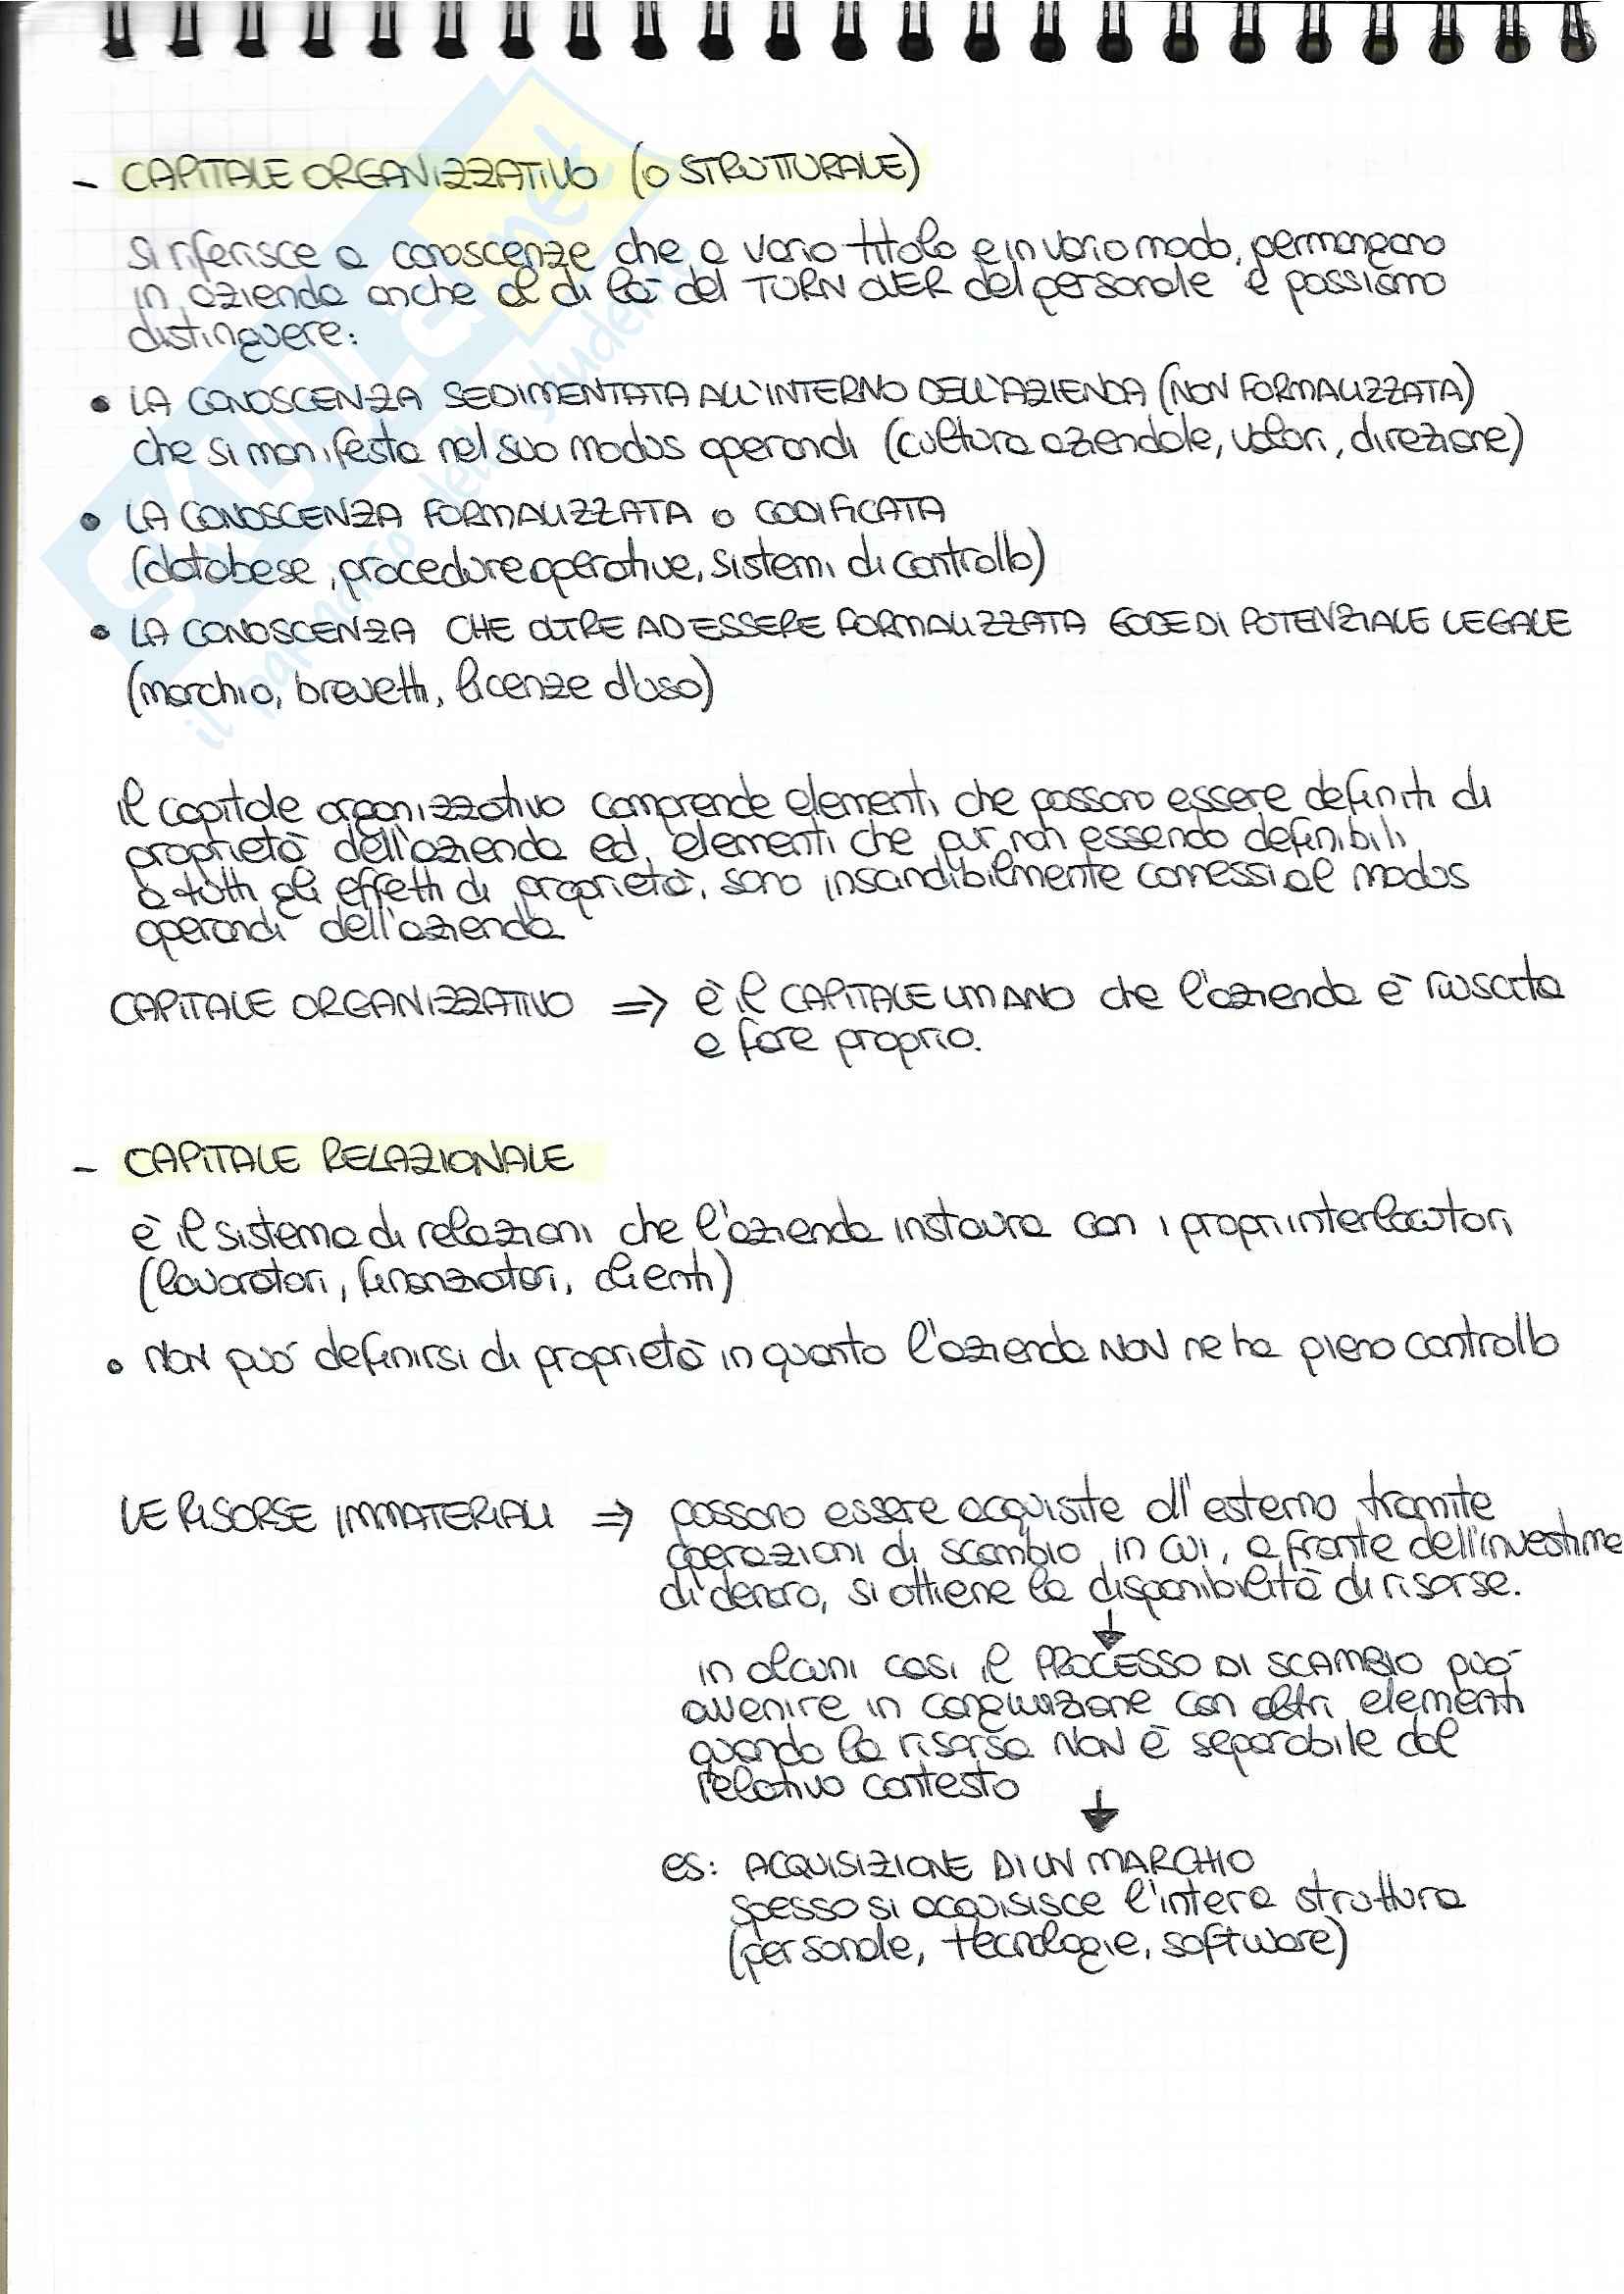 - CAPITALE ORGANIZZATIVO (O STRUTTURALE)
Si riferisce a conoscenze che a vario titolo e in vario modo, permangano
in azienda anche al di là del TURN OVER del personale e possiamo
distinguere:
• LA CONOSCENZA SEDIMENTATA ALL'INTERNO DELL'AZIENDA (NON FORMALIZZATA)
che si manifesta nel suo modus operandi (cultura aziendale, valori, direzione)
• LA CONOSCENZA FORMALIZZATA O CODIFICATA
(database, procedure operative, sistemi di controllo)
• LA CONOSCENZA CHE OLTRE AD ESSERE FORMALIZZATA GODE DI POTENZIALE LEGALE
(marchio, brevetti, licenze d'uso)
il capitale organizzativo comprende elementi che possono essere definiti di
proprietà dell'azienda ed elementi che pur non essendo definibili
a tutti gli effetti di proprietà, sono inscindibilmente connessi al modus
operandi dell'azienda
CAPITALE ORGANIZZATIVO ⇒ è il CAPITALE UMANO che l'azienda è riuscita
a fare proprio.
- CAPITALE RELAZIONALE
è il sistema di relazioni che l'azienda instaura con i propri interlocutori
(lavoratori, finanziatori, clienti)
• NON può definirsi di proprietà in quanto l'azienda NON ne ha pieno controllo
LE RISORSE IMMATERIALI ⇒ possono essere acquisite all'esterno tramite
operazioni di scambio in cui, a fronte dell'investime
di denaro, si ottiene la disponibilità di risorse.
↓
in alcuni casi il PROCESSO DI SCAMBIO può
avvenire in congiunzione con altri elementi
quando la risorsa NON è separabile dal
relativo contesto
↓
es: ACQUISIZIONE DI UN MARCHIO
spesso si acquisisce l'intera struttura
(personale, tecnologie, software)